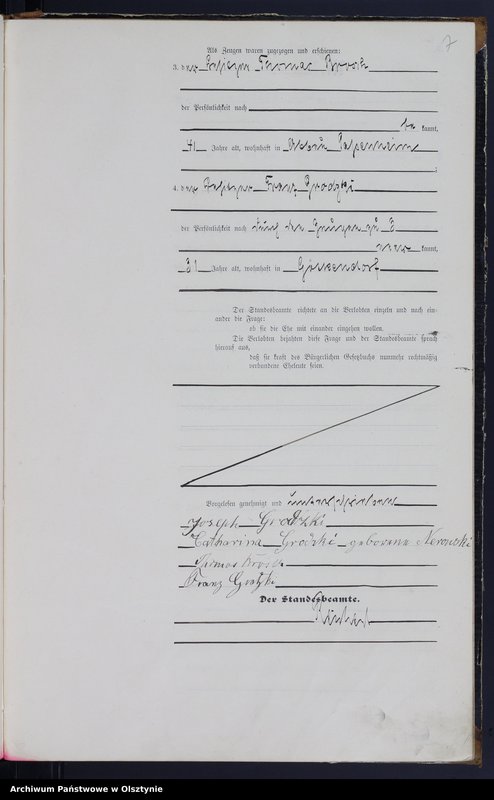 7
Als Zeugen waren zugezogen und erschienen:
3. der Besitzer Thomas Brosch
der Persönlichkeit nach
be kannt,
41 Jahre alt, wohnhaft in Abbau
;
4. der Besitzer Franz Grodzki
der Persönlichkeit nach durch den Zeugen zu 3
aner kannt,
31 Jahre alt, wohnhaft in
Der Standesbeamte richtete an die Verlobten einzeln und nach ein-
ander die Frage:
ob sie die Ehe mit einander eingehen wollen.
Die Verlobten bejahten diese Frage und der Standesbeamte sprach
hierauf aus,
daß sie kraft des Bürgerlichen Gesetzbuchs nunmehr rechtmäßig
verbundene Eheleute seien.
Vorgelesen, genehmigt und unterschrieben
Joseph Grodzki
Catharina Grodzki geborene Nerowski
Thomas Brosch
Franz Grodzki
Der Standesbeamte.
Archiwum Państwowe w Olsztynie